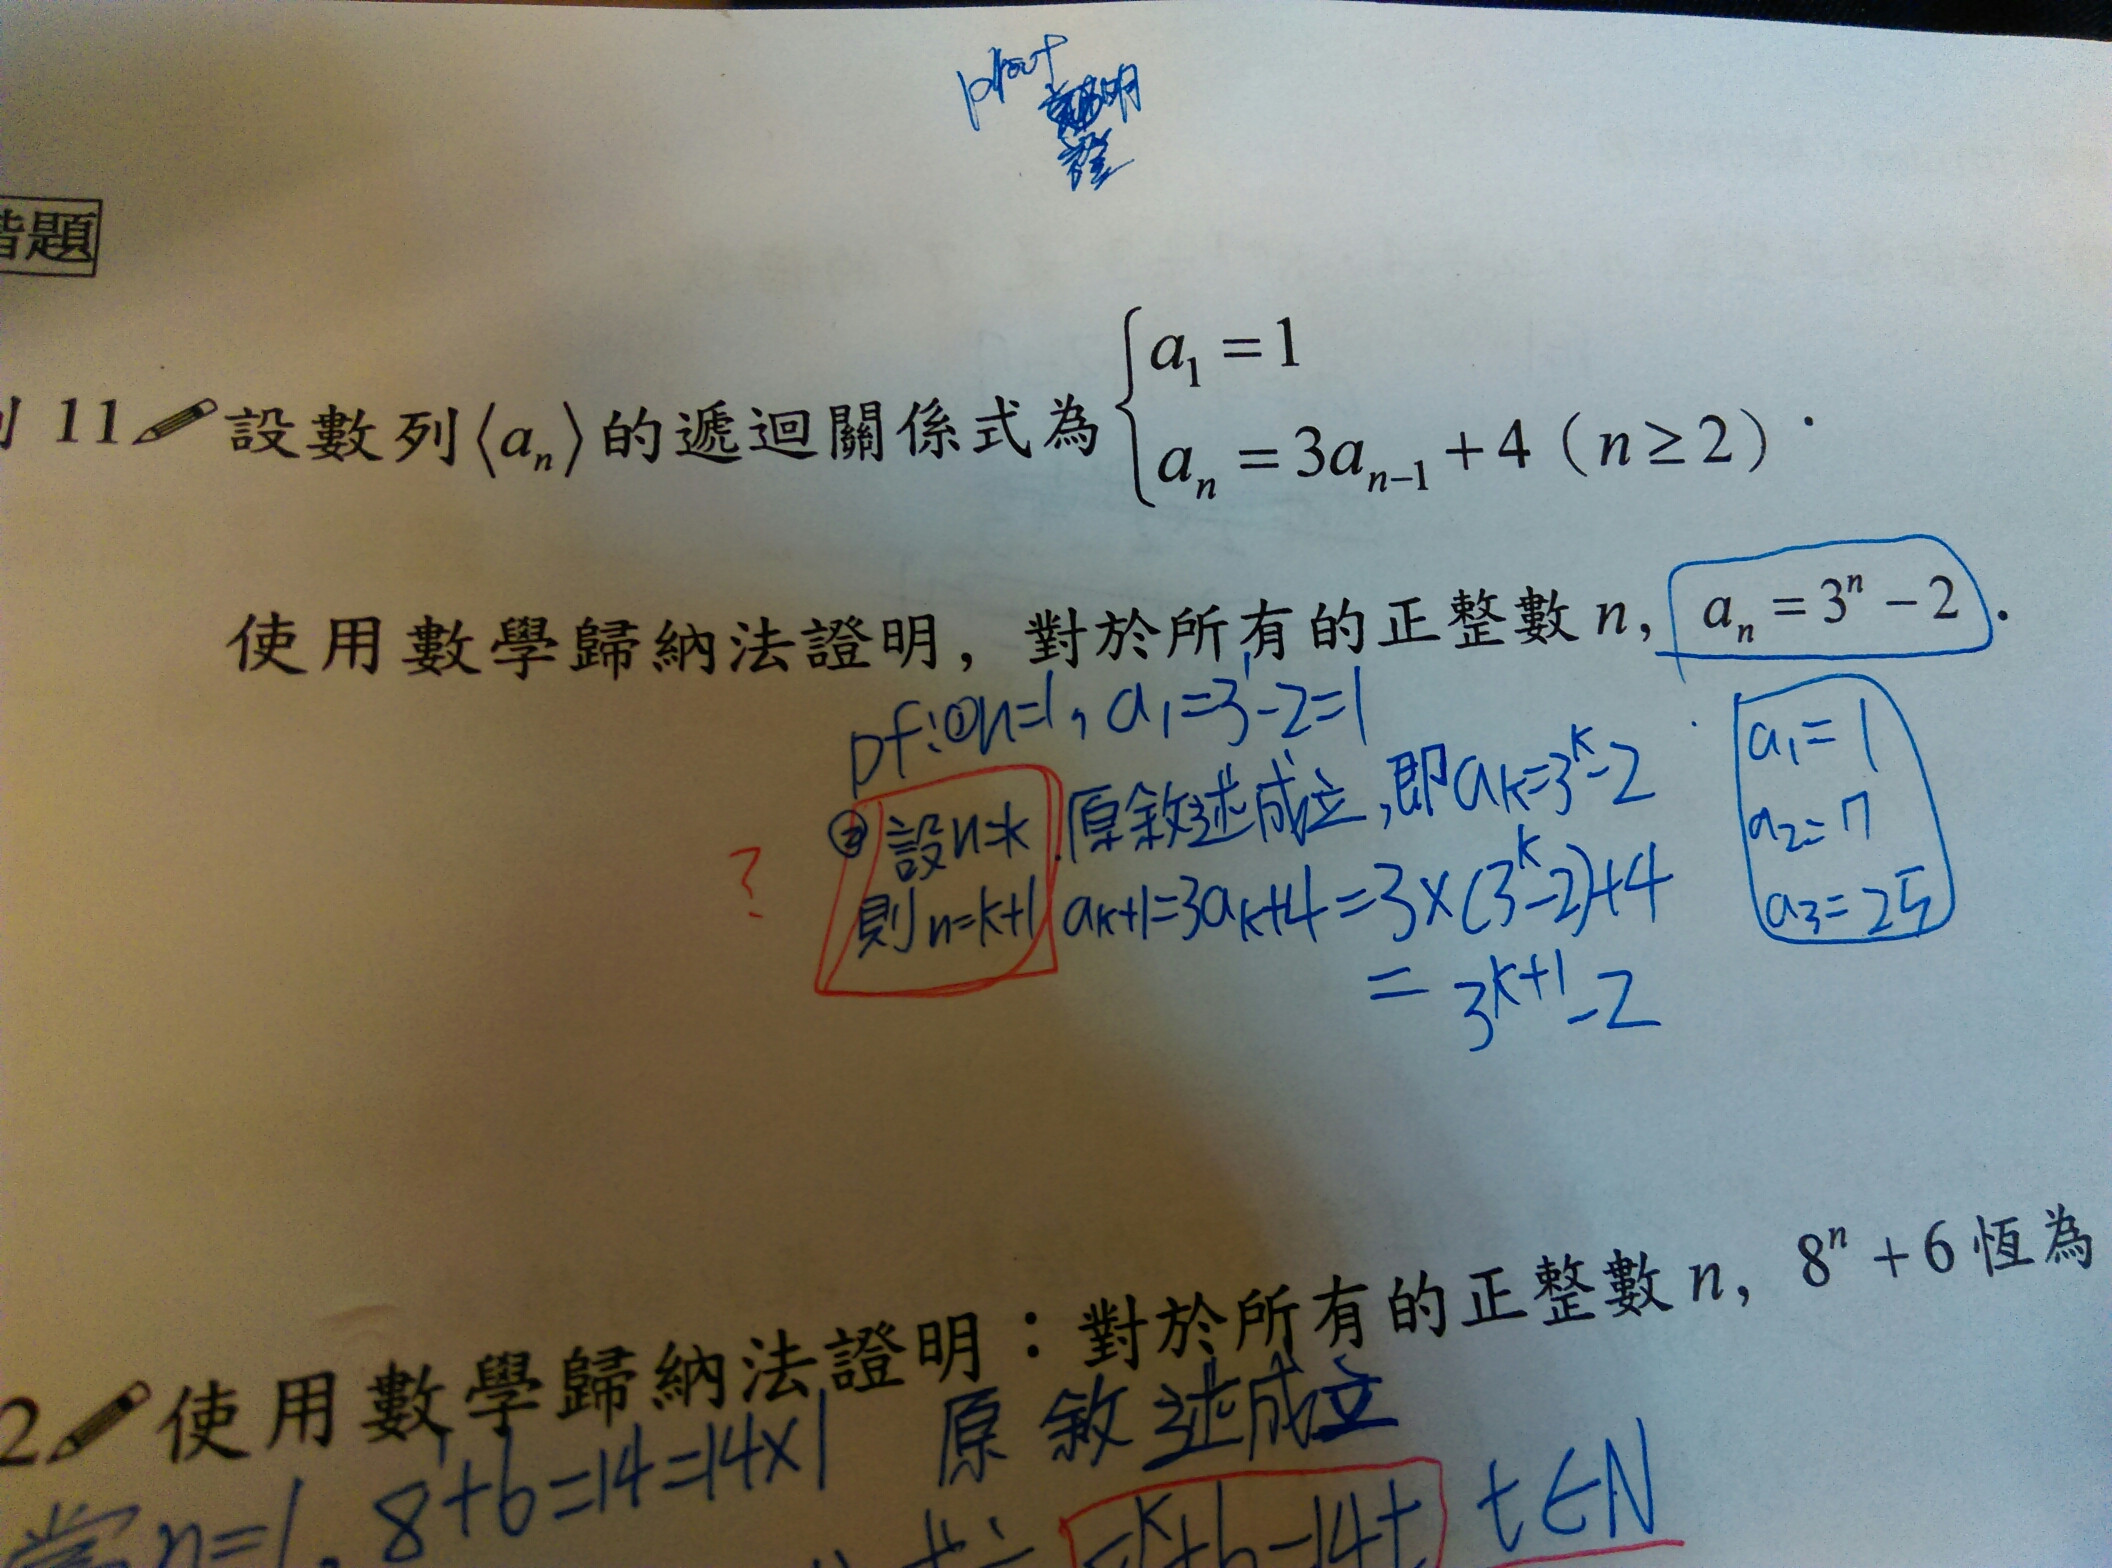 proof
明
證
題
11 設數列⟨aₙ⟩的遞迴關係式為 { a₁ = 1
aₙ = 3aₙ₋₁ + 4 ( n ≥ 2 ) .
使用數學歸納法證明, 對於所有的正整數 n, aₙ = 3ⁿ − 2 .
pf:①n=1, a₁=3¹-2=1
② 設n=k 原敘述成立,即aₖ=3ᵏ-2
? 則n=k+1 aₖ₊₁=3aₖ+4=3×(3ᵏ-2)+4
= 3ᵏ⁺¹-2
a₁=1
a₂=7
a₃=25
2 使用數學歸納法證明：對於所有的正整數 n, 8ⁿ + 6 恆為
當n=1, 8¹+6=14=14×1 原敘述成立
t∈N